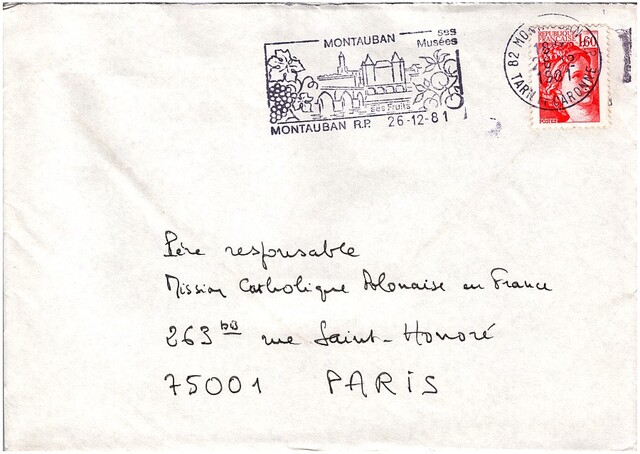 MONTAUBAN
ses
Musées
ses Fruits
MONTAUBAN R.P. 26-12-81
82
TARN
GARONNE
1981
REPUBLIQUE
FRANÇAISE
1,60
Père responsable
Mission Catholique Polonaise en France
263 bis rue Saint-Honoré
75001 PARIS